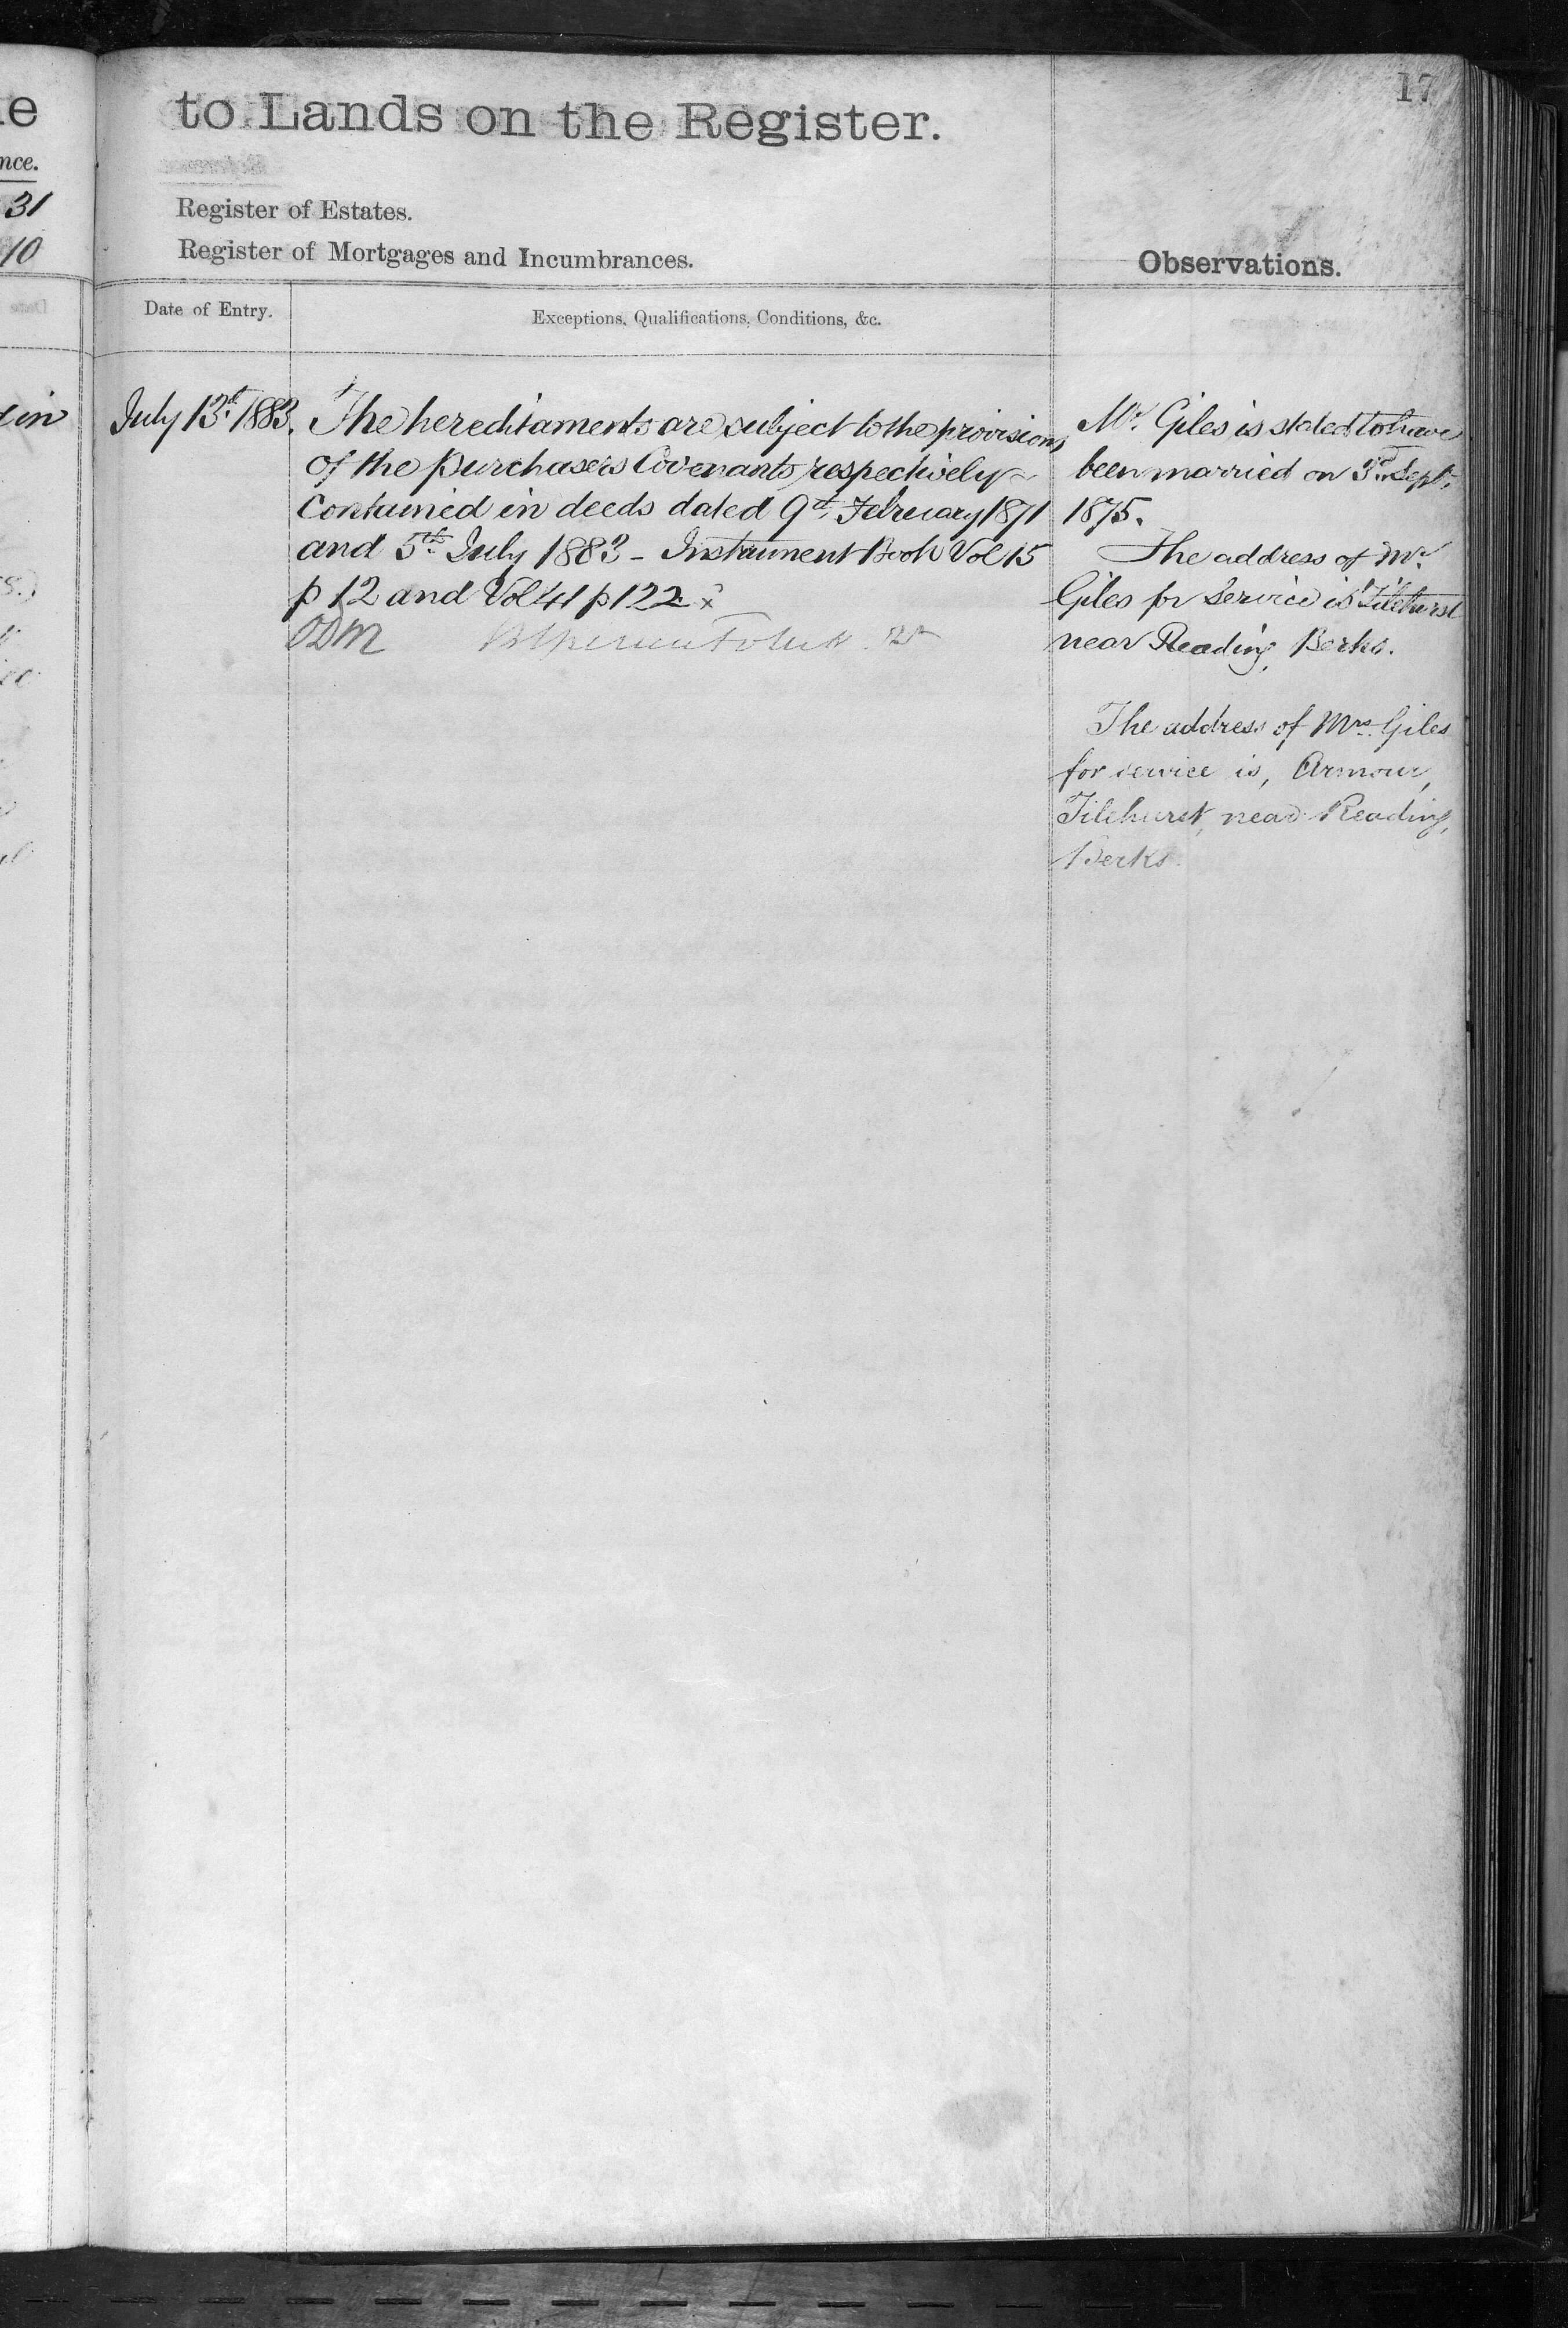 17
to Lands on the Register.
Register of Estates.
Register of Mortgages and Incumbrances.
Observations.
nce.
31
10
Date of Entry.
Exceptions, Qualifications, Conditions, &c.
in
July 13th 1883.
The hereditaments are subject to the provisions
of the purchasers Covenants respectively
Contained in deeds dated 9th February 1871
and 5th July 1883 - Instrument Book Vol 15
p 12 and Vol 41 p 122 x
ODM
Mr. Giles is stated to have
been married on 3rd Sept.
1875.
The address of Mr.
Giles for Service is Tilehurst
near Reading, Berks.
The address of Mrs. Giles
for service is, Armour,
Tilehurst, near Reading,
Berks.